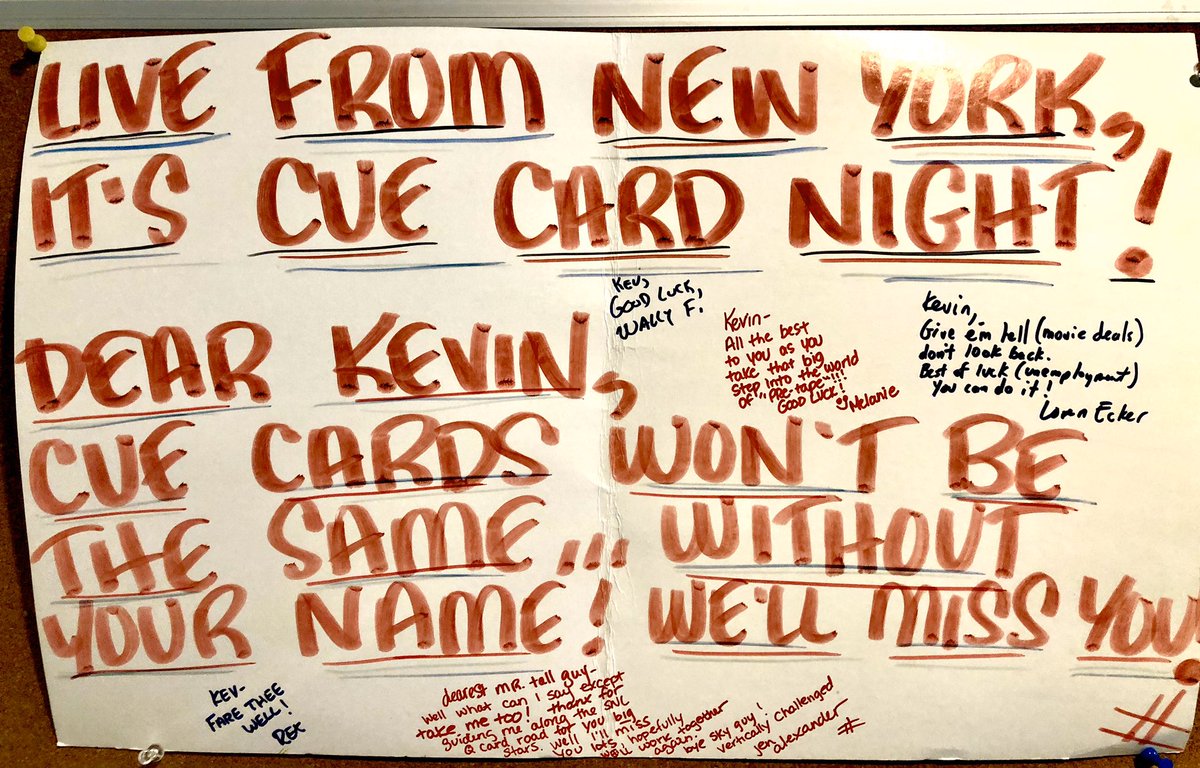 LIVE FROM NEW YORK,
IT'S CUE CARD NIGHT!
KEV,
GOOD LUCK,
WALLY F.
Kevin-
All the best
to you as you
take that big
step into the world
of "pre-tape"!!!
GOOD LUCK!
Melanie
Kevin,
Give em hell (movie deals)
don't look back.
Best of luck (unemployment)
You can do it!
Loren Ecker
DEAR KEVIN,
CUE CARDS WON'T BE
THE SAME... WITHOUT
YOUR NAME! WE'LL MISS YOU!
#
KEV-
FARE THEE
WELL!
dearest MR. tall guy-
well what can I say except
take me too! thanks for
guiding me along the SNL
Q card road for you big
stars. Well I'll miss
you lots hopefully
we'll work together
again!
bye sky guy!
vertically challenged
jen alexander
#